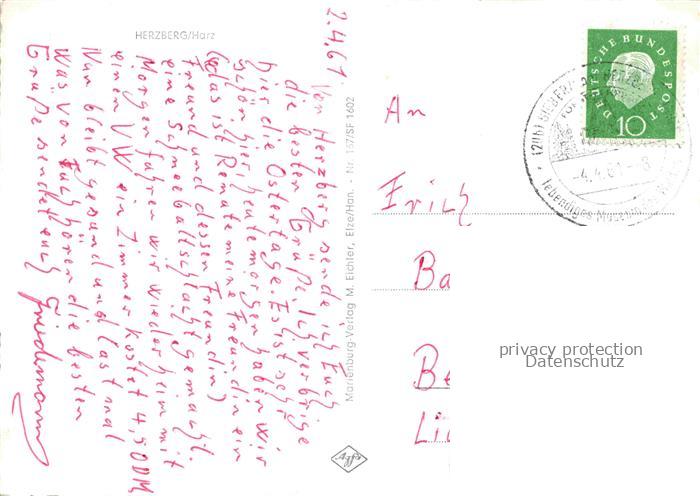 HERZBERG/Harz
2.4.61
Von Herzberg sende ich Euch
die besten Grüße. Ich verbringe
hier die Ostertage. Es ist sehr
schön hier, heute morgen haben wir
(das ist Renate meine Freundin ein
Freund und dessen Freundin)
eine Schneeballschlacht gemacht.
Morgen fahren wir wieder heim mit
einem VW ein Zimmer kostet 4,50 DM
Nun bleibt gesund und lasst mal
was von Euch hören die besten
Grüße sendet euch Friedemann
Marienburg-Verlag M. Eichler, Elze/Han. - Nr. 157/SF 1602
Agfa
DEUTSCHE BUNDESPOST
10
(20b)
-4.4.61-8
lebendiges Museum
An
Erich
Ba
Be
Li
privacy protection
Datenschutz